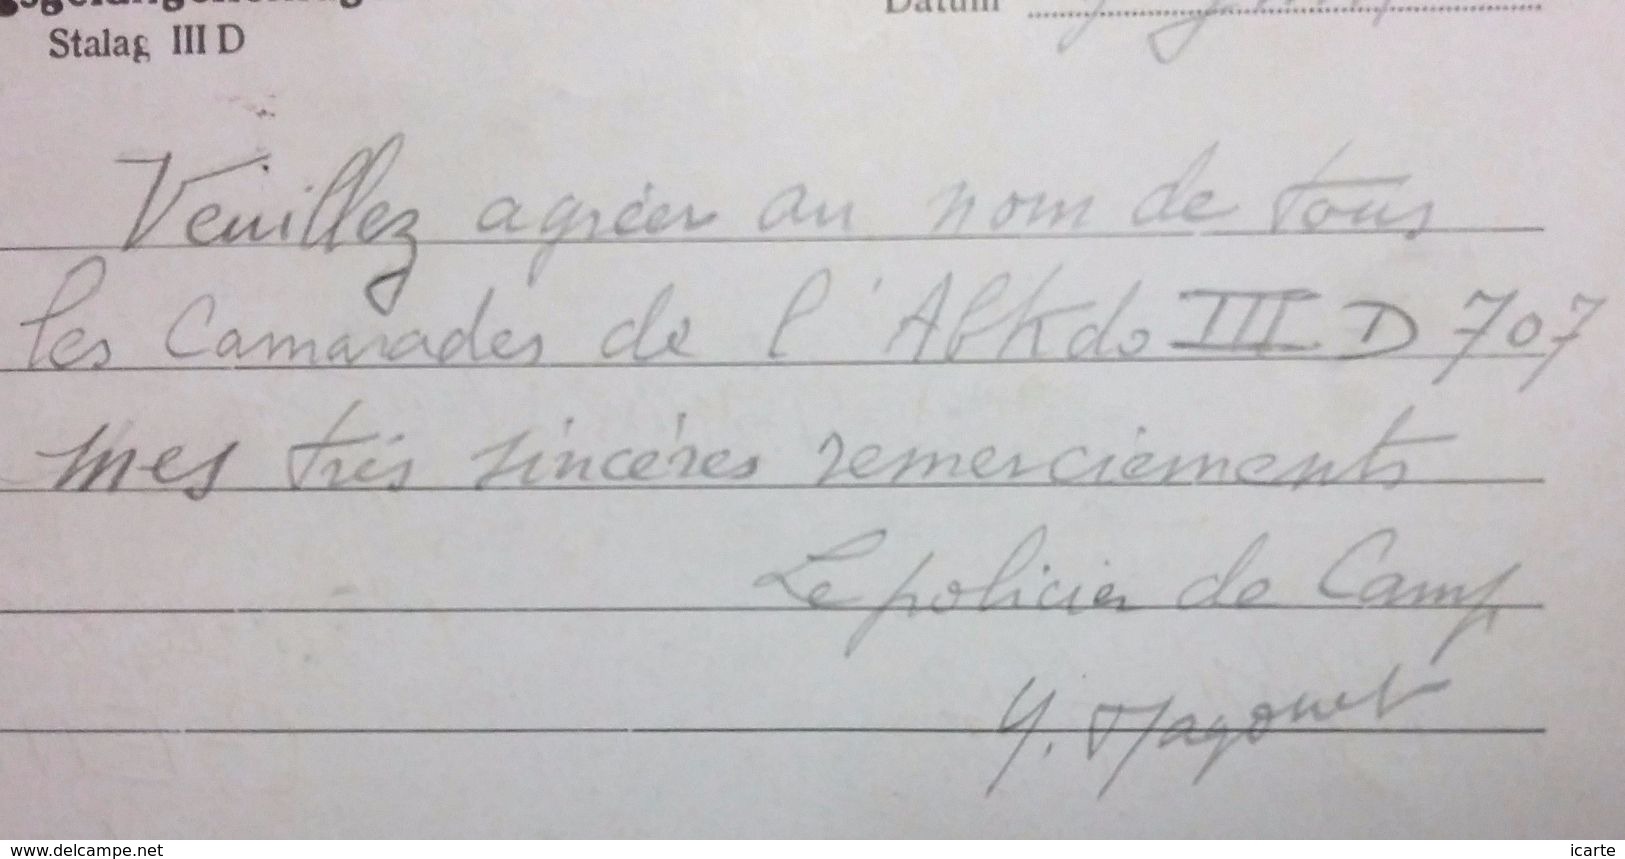 Stalag III D
Datum
Veuillez agréer au nom de tous
les Camarades de l'AbKdo III D 707
mes très sincères remerciements
Le policier de Camp
Y. Magonet
www.delcampe.net
icarte